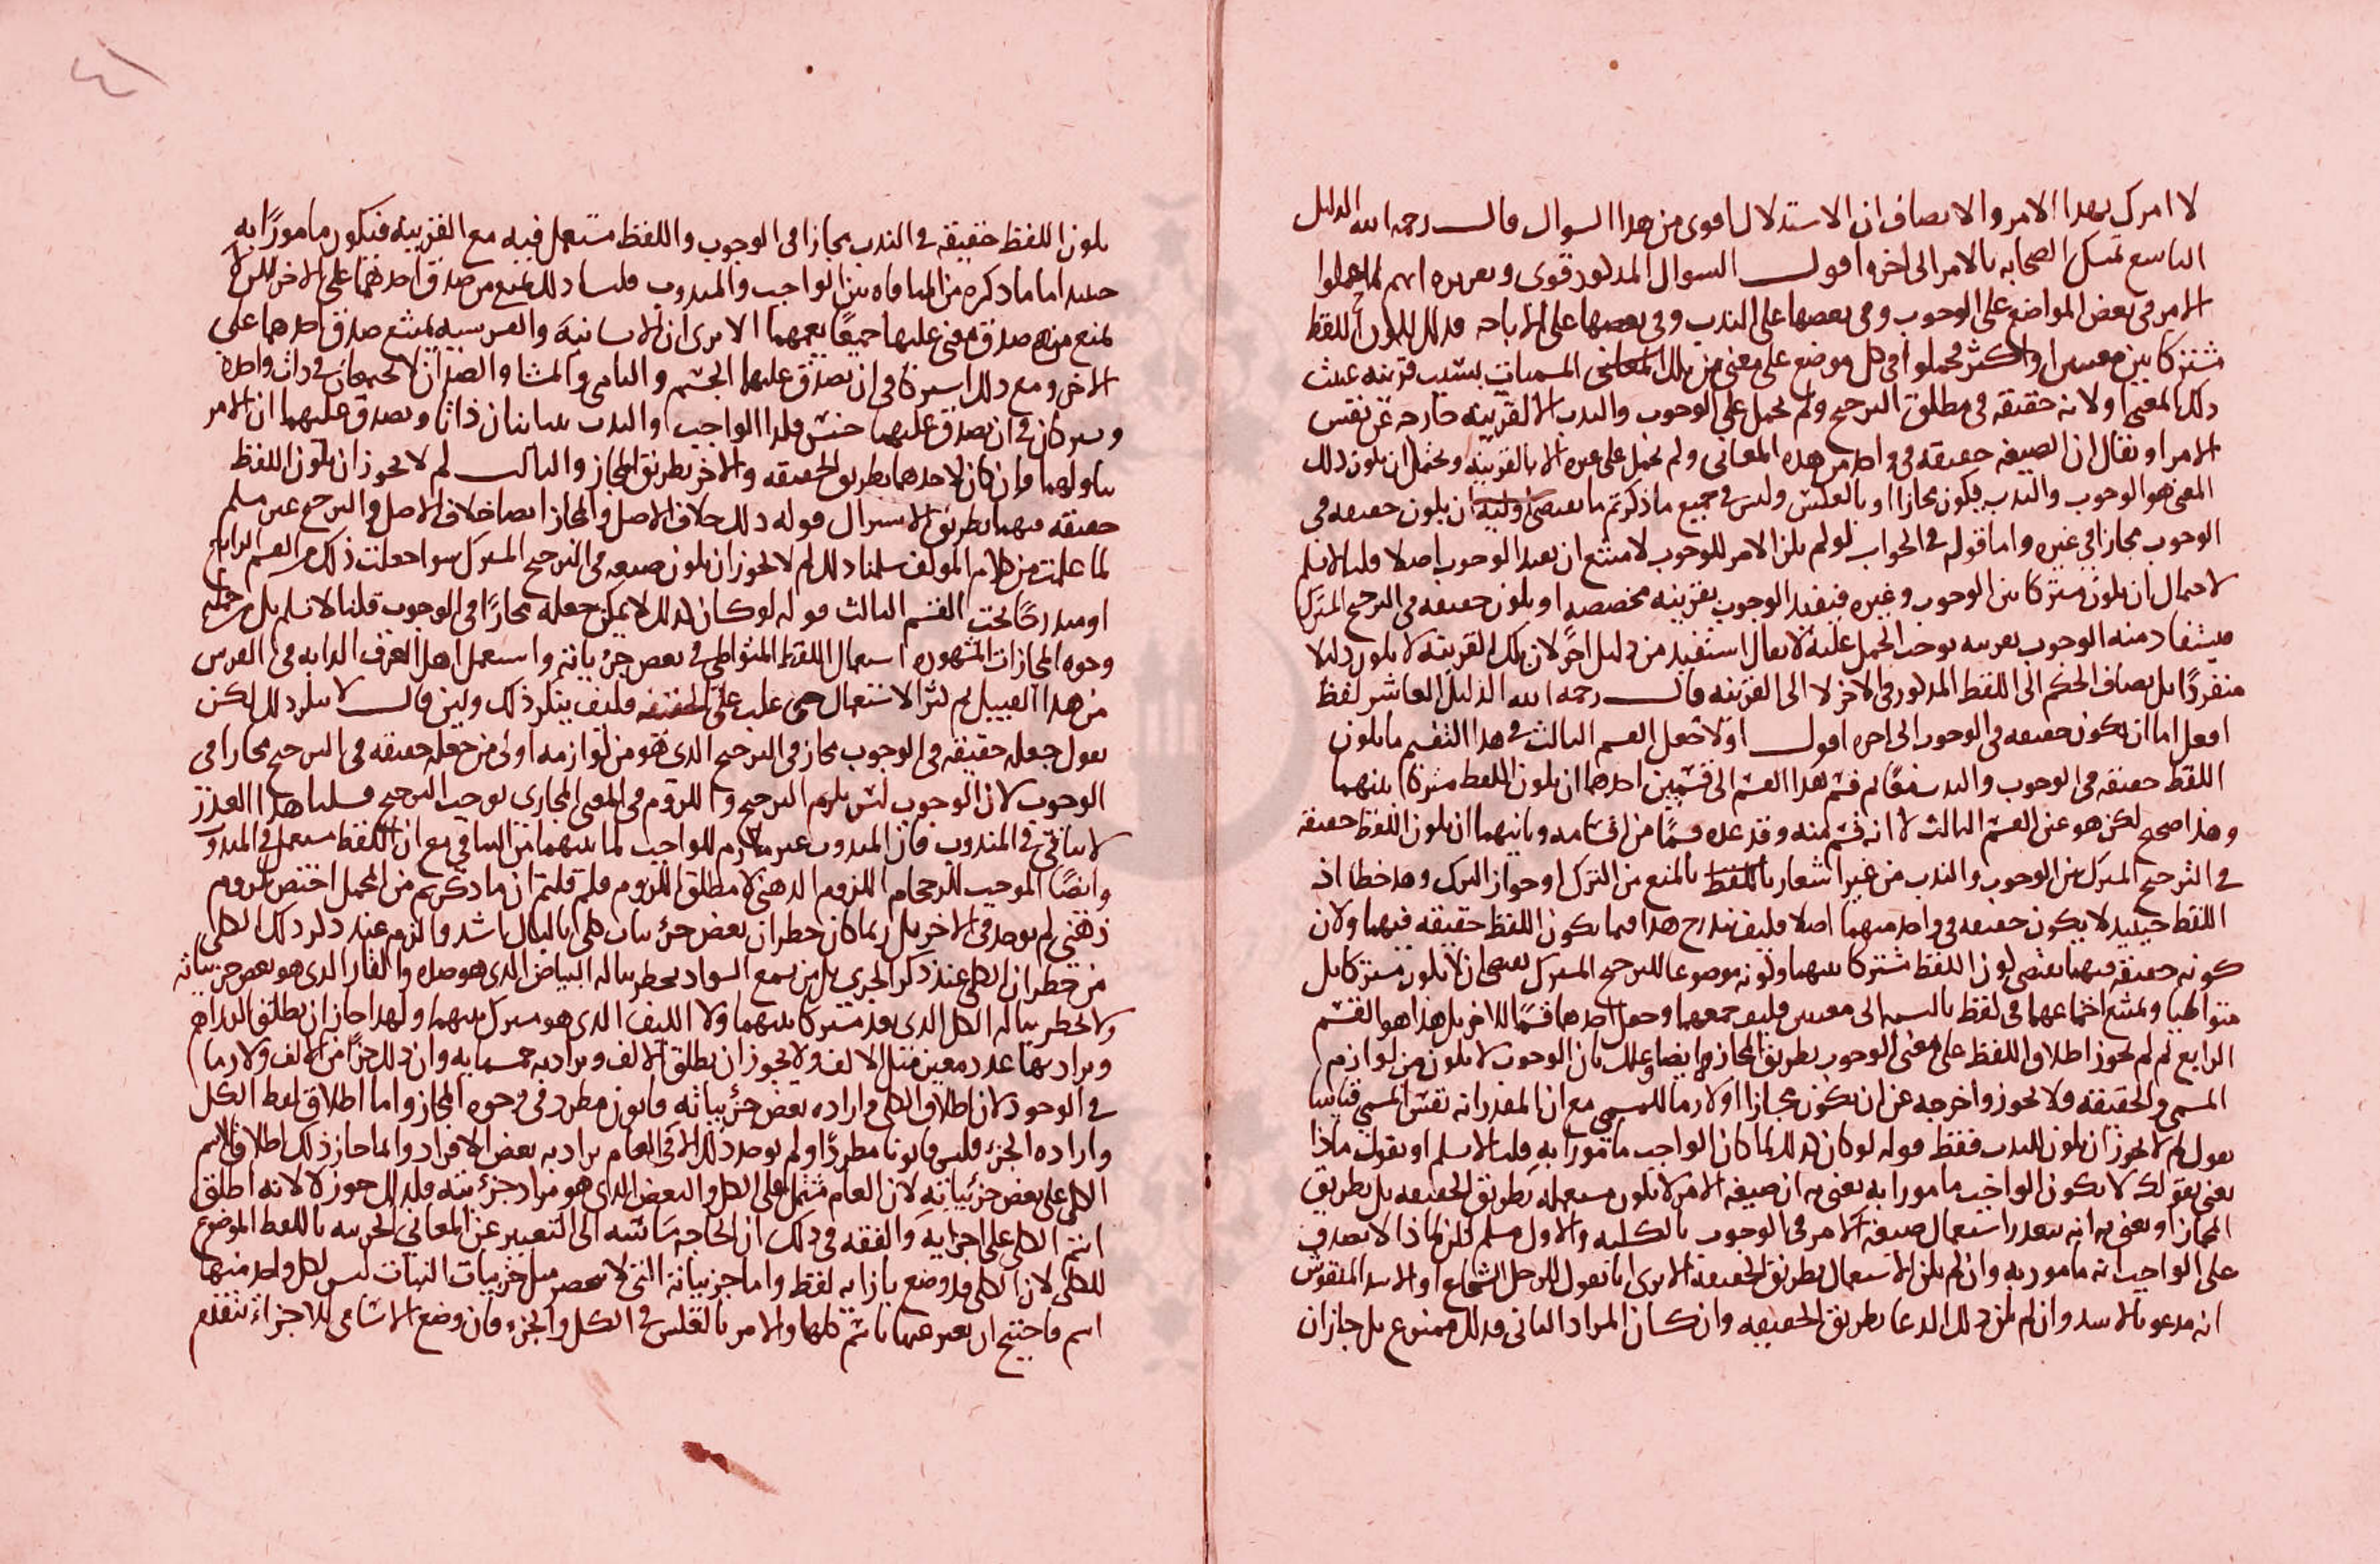 لا امرك بهذا الامر والانصاف ان الاستدلال اقوى من هذا السوال قال رحمه الله الدليل
التاسع تمسك الصحابه بالامر الى اخره اقول السوال المذكور قوى وتقريره انهم لما حملوا
الامر في بعض المواضع على الوجوب وفي بعضها على الندب وفي بعضها على الاباحه فذلك لكون اللفظ
مشتركا بين معنيين او اكثر فحملوا في كل موضع على معنى من تلك المسميات بسبب قرينه عينت
ذلك المعنى او لانه حقيقه في مطلق الترجيح ولم يحمل على الوجوب والندب الا لقرينه خارجه عن نفس
الامر او نقال ان الصيغه حقيقه في واحد من هذه المعاني ولم تحمل على غيره الا بالقرينه ويحتمل ان يكون ذلك
المعنى هو الوجوب والندب فيكون مجازا او بالعكس وليس في جميع ما ذكرتم ما يقتضى اولية ان يكون حقيقه في
الوجوب مجازا في غيره واما قوله في الجواب لو لم يكن الامر للوجوب لامتنع ان يفيد الوجوب اصلا قلنا لا نسلم
لاحتمال ان يكون مشتركا بين الوجوب وغيره فيفيد الوجوب بقرينه مخصصه او يكون حقيقه في الترجيح المشترك
فيستفاد منه الوجوب بقرينه توجب الحمل عليه لا يقال استفيد من دليل اخر لان تلك القرينه لا يكون دليلا
منفردا بل يضاف الحكم الى اللفظ المذكور في الاخر لا الى القرينه قال رحمه الله الدليل العاشر لفظ
افعل اما ان يكون حقيقه في الوجوب الى اخره اقول اولا جعل القسم الثالث في هذا التقسيم ما يكون
اللفظ حقيقه في الوجوب والندب معا ثم قسم هذا القسم الى قسمين احدهما ان يكون اللفظ مشتركا بينهما
وهذا صحيح لكن هو عين القسم الثالث لا انه قسم منه وقد عده قسما من اقسامه وثانيهما ان يكون اللفظ حقيقه
في الترجيح المشترك بين الوجوب والندب من غير اشعار بالمنع من الترك او جواز الترك وهذا خطا اذ
اللفظ حينئذ لا يكون حقيقه في واحد منهما اصلا فكيف يندرج هذا فيما يكون اللفظ حقيقه فيهما ولان
كونه حقيقه فيهما يقتضى كون اللفظ مشتركا بينهما وكونه موضوعا للترجيح المشترك يقتضى ان لا يكون مشتركا بل
متواطيا ويمتنع اجتماعهما في لفظ بالنسبه الى معنيين فكيف جمعهما وجعل احدهما قسما للاخر بل هذا هو القسم
الرابع ثم لم يجوز اطلاق اللفظ على معنى الوجوب بطريق المجاز وايضا وعلل بان الوجوب لا يكون من لوازم
المسمى والحقيقه ولا يجوز واخرجه عن ان يكون مجازا او لازما للمسمى مع ان المقدر انه نفس المسمى قياسا
نقول لم لا يجوز ان يكون للندب فقط قوله لو كان كذلك لما كان الواجب مامورا به قلنا لا نسلم او نقول ماذا
تعنى بقولك لا يكون الواجب مامورا به تعنى به ان صيغه الامر لا يكون مستعمله بطريق الحقيقه بل بطريق
المجاز او تعنى به انه يتعذر استعمال صيغه الامر في الوجوب بالكليه والاول مسلم لكن لماذا لا يصدق
على الواجب انه مامور به وان لم يكن الاستعمال بطريق الحقيقه الا يرى انا نقول للرجل الشجاع او الاسد المنقوش
انه مدعو بالاسد وان لم يكن ذلك الدعا بطريق الحقيقه وان كان المراد الثاني فذلك ممنوع بل جاز ان
يكون اللفظ حقيقه في الندب مجازا في الوجوب واللفظ مستعمل فيه مع القرينه فيكون مامورا به
حينئذ اما ما ذكره من المنافاه بين الواجب والمندوب قلنا ذلك يمنع من صدق احدهما على الاخر لكن لا
يمنع من صدق معنى عليهما جميعا يعمهما الا يرى ان الانسانيه والفرسيه يمتنع صدق احدهما على
الاخر ومع ذلك اشتركا في ان يصدق عليهما الجسم والنامى والمشا والضدان لا يجتمعان في ذات واحده
ويشتركان في ان يصدق عليهما جنس فكذا الواجب والندب يتباينان ذاتا ويصدق عليهما ان الامر
تناولهما وان كان لاحدهما بطريق الحقيقه والاخر بطريق المجاز والثالث لم لا يجوز ان يكون اللفظ
حقيقه فيهما بطريق الاشتراك قوله ذلك خلاف الاصل والمجاز ايضا خلاف الاصل والترجيح غير مسلم
لما علمت من كلام المولف سلمنا ذلك لم لا يجوز ان يكون صيغه في الترجيح المشترك سوا جعلت ذلك من القسم الرابع
او مندرجا تحت القسم الثالث قوله لو كان كذلك لا يمكن جعله مجازا في الوجوب قلنا لا نسلم بل من جمله
وجوه المجازات المشهوره استعمال اللفظ المتواطي في بعض جزئياته واستعمل اهل العرف الدابه في الفرس
من هذا القبيل ثم كثر الاستعمال حتى غلب على الحقيقه فكيف ينكر ذلك ولين قال لا ينكر ذلك لكن
نقول جعله حقيقه في الوجوب مجاز في الترجيح الذى هو من لوازمه اولى من جعله حقيقه في الترجيح مجازا في
الوجوب لان الوجوب ليس يلزم الترجيح واللزوم في المعنى المجازى يوجب الترجيح قلنا هذا العذر
لا يتاتى في المندوب فان المندوب غير ملازم للواجب لما بينهما من التنافي مع ان اللفظ مستعمل في المندوب
وايضا الموجب للرجحان اللزوم الذهنى لا مطلق اللزوم فلم قلتم ان ما ذكرتم من المحمل اختص بلزوم
ذهنى لم يوجد في الاخر بل ربما كان خطران بعض جزئيات كلى بالبال اشد والزم عند ذكر ذلك الكلى
من خطران الكلى عند ذكر الجزى بل من سمع السواد يخطر بباله البياض الذى هو ضده والقار الذى هو بعض جزئياته
ولا يخطر بباله الكل الذى بعد مشتركا بينهما ولا الكيف الذى هو مشترك بينهما ولهذا جاز ان يطلق الدراهم
ويراد بها عدد معين مثل الالف ولا يجوز ان يطلق الالف ويراد به خمسمايه وان ذلك جزا من الالف ولازما
في الوجود لان اطلاق الكلى واراده بعض جزئياته قانون مطرد في وجوه المجاز واما اطلاق لفظ الكل
واراده الجزء فليس قانونا مطردا ولم يوجد ذلك الا في العام يراد به بعض الافراد وانما جاز ذلك اطلاقا لاسم
الكلى على بعض جزئياته لان العام مشتمل على الكل والبعض الذى هو مراد جزئيته فلذلك جوز لا لانه اطلق
اسم الكل على اجزايه والفقه في ذلك ان الحاجه ماسه الى التعبير عن المعانى الجزييه باللفظ الموضوع
للكلى لان الكلى قد وضع بازايه لفظ واما جزيياته التى لا تنحصر مثل جزييات النبات ليس لكل واحد منها
اسم فاحتيج ان يعبر عنها باسم كلها والامر بالعكس في الكل والجزء فان وضع الاسامى للاجزاء متقدم